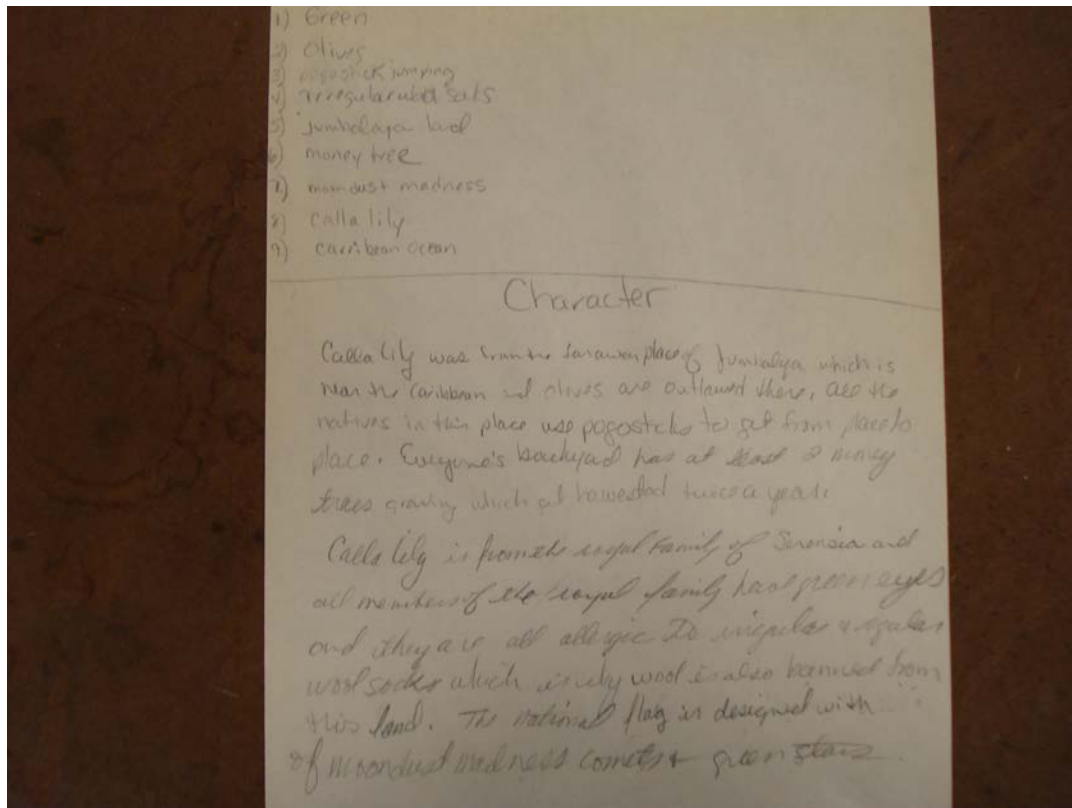 1) Green
2) Olives
3) pogostick jumping
4) irregular wool
5) land
6) money tree
7) moondust madness
8) calla lily
9) carribean ocean
Character
Calla lily was from the place of which is
near the Caribbean and olives are outlawed there, all the
natives in this place use pogosticks to get from place to
place. Everyone's backyard has at least 2 money
trees growing which get twice a year.
Calla lily is from the royal family of and
all members of the royal family have green eyes
and they are all allergic to
wool socks which is why wool is also banned from
this land. The national flag is designed with
of moondust madness comets + green stars.